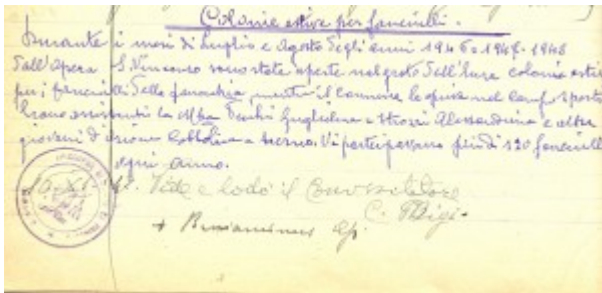 Colonie estive per fanciulli.
Durante i mesi di Luglio e Agosto degli anni 1946=1947-1948
dall'opera S. Vincenzo sono state aperte nel prato dell' colonie estive
per i fanciulli della parrocchia, mentre il comune le apriva nel campo sportivo
Erano assistenti la M Guglielmina e Strozzi Alessandrina e altre
giovani d'azione Cattolica a turno. Vi partecipavano più di 120 fanciulli
ogni anno.
Vide e lodò il
C.
+ Beniaminus Ep.